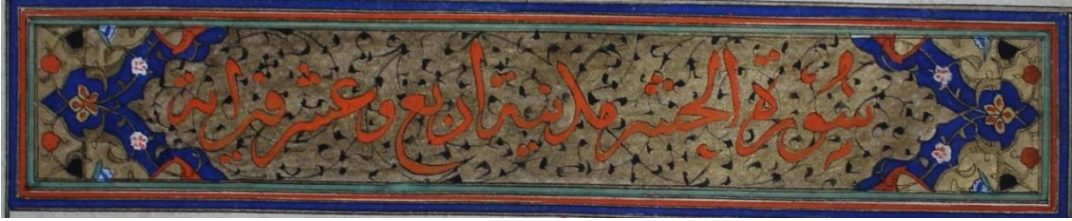 سورة الحشر مدنية اربع وعشرون اية